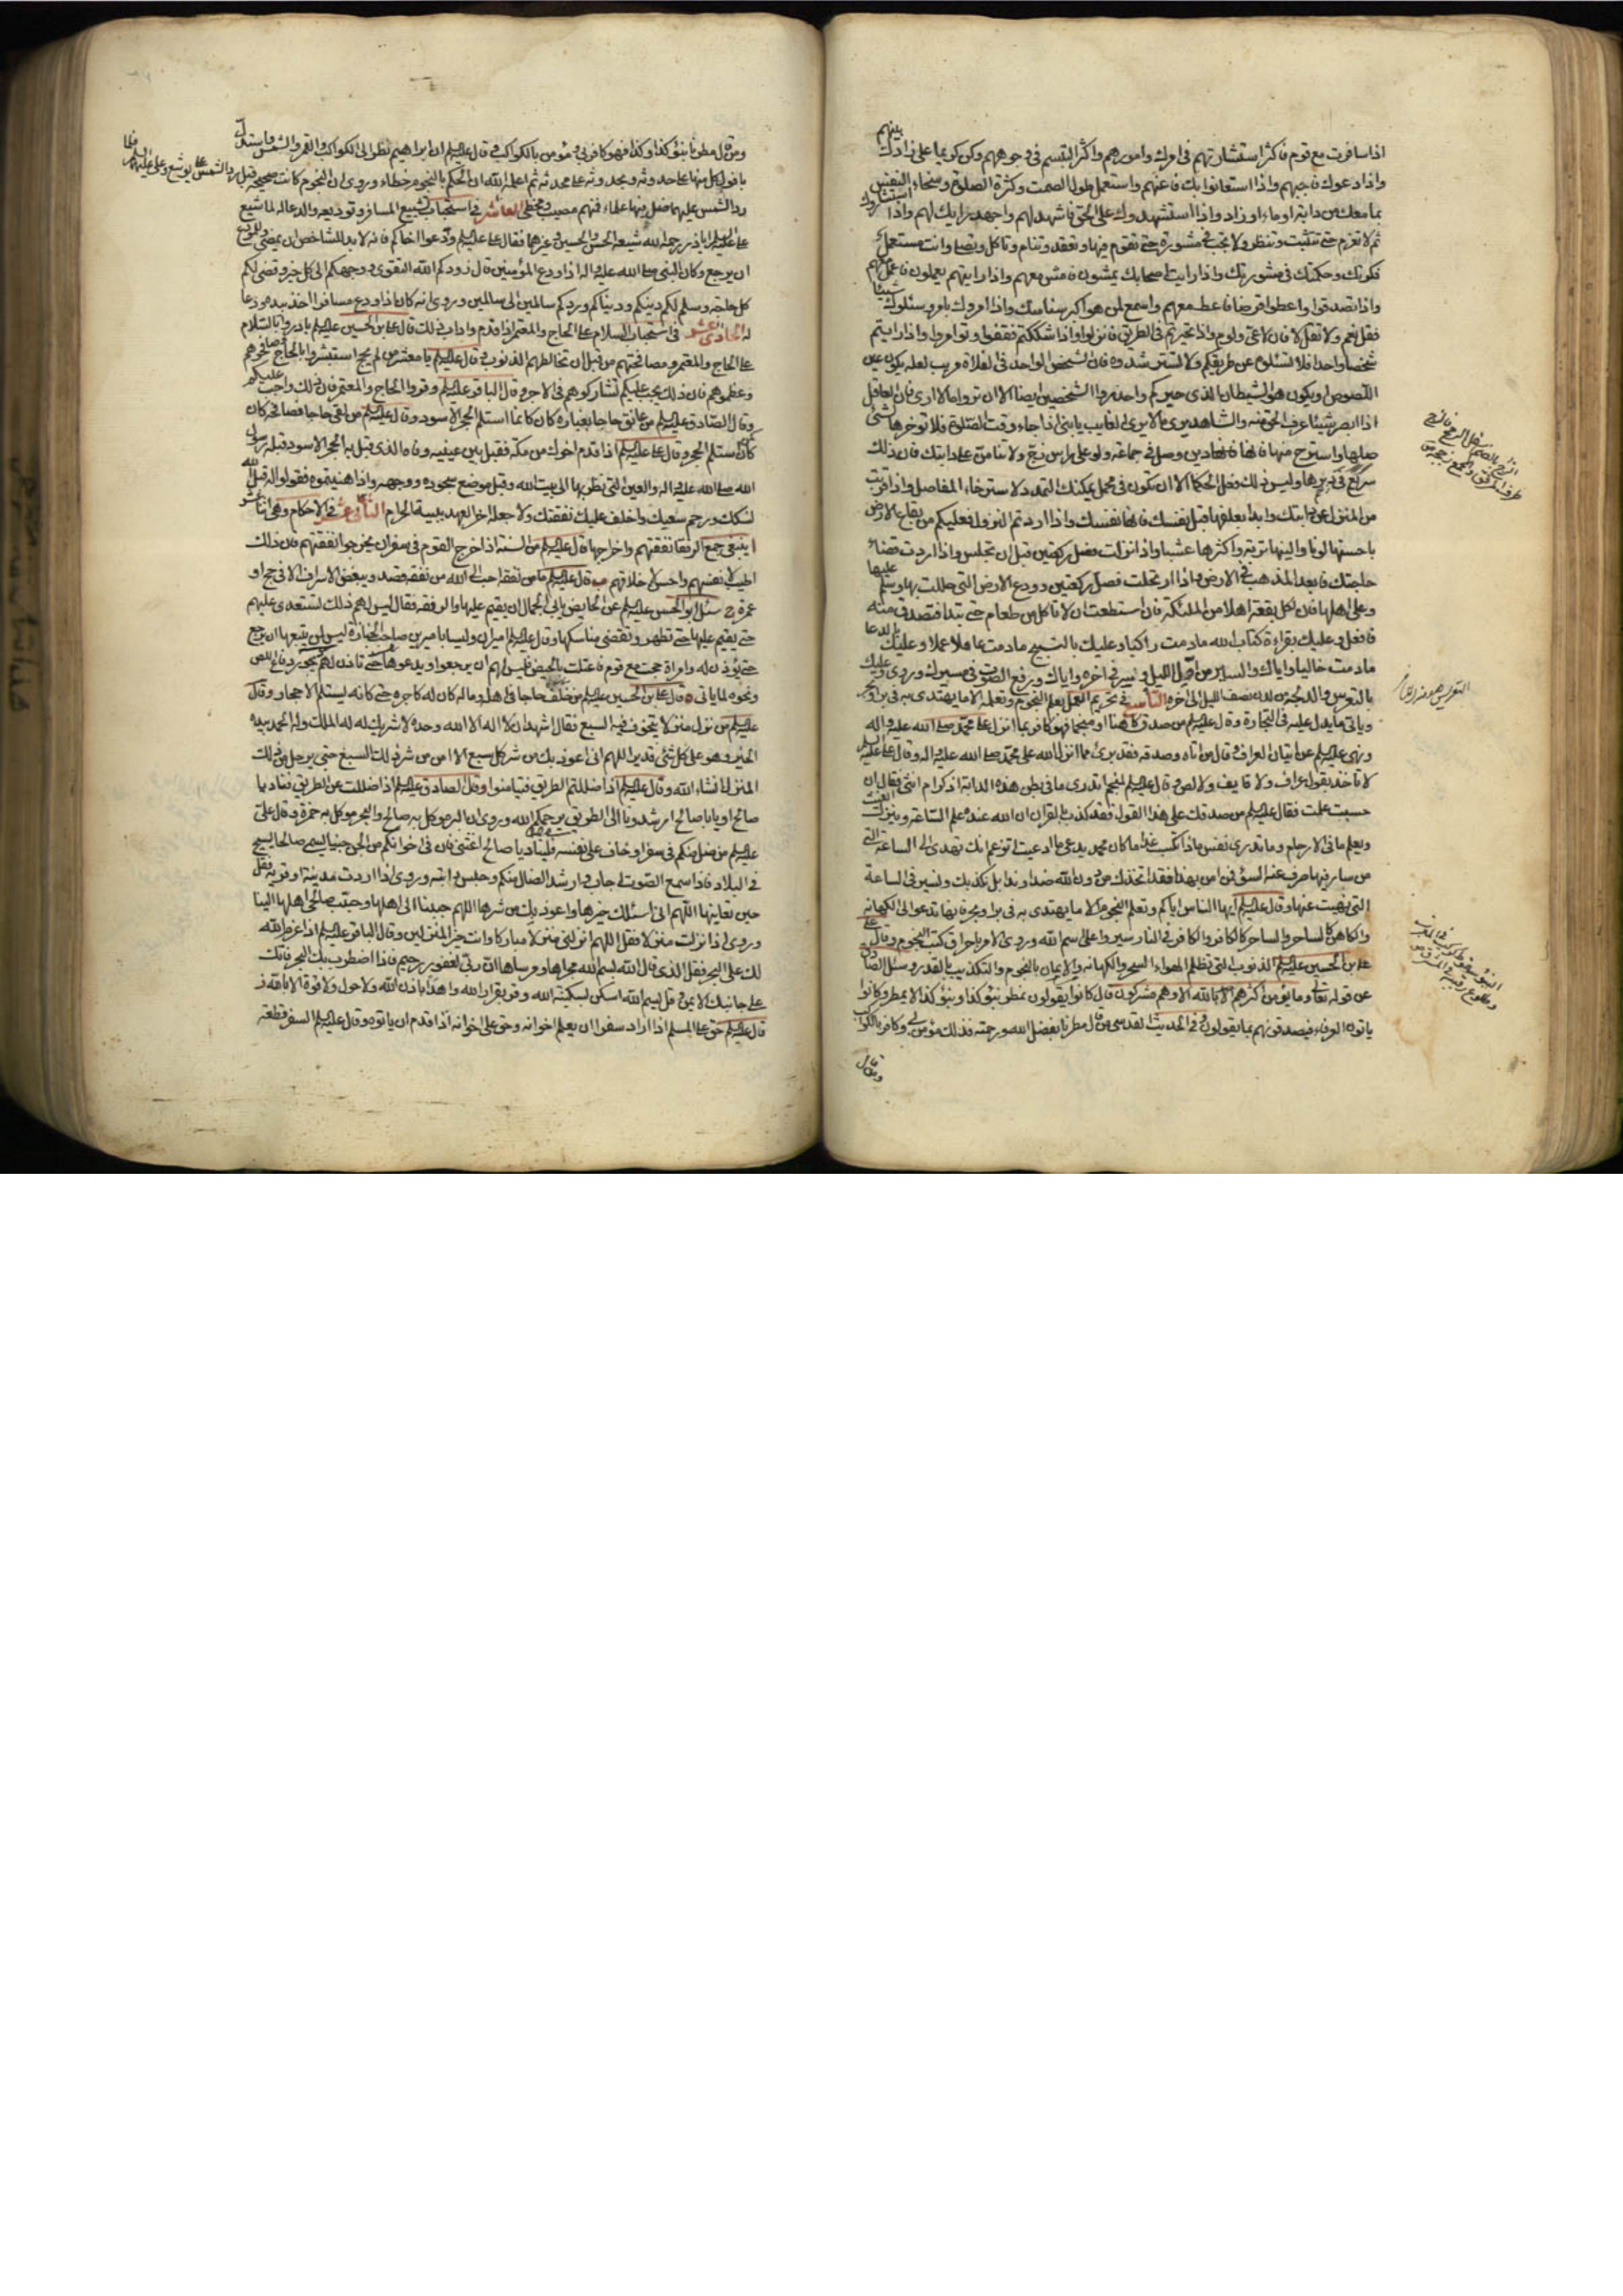 اذا سافرت مع قوم فاكثر استشارتهم في امرك وامورهم واكثر التبسم في وجوههم وكن كريما على زادك بينهم
واذا دعوك فاجبهم واذا استعانوا بك فاعنهم واستعمل طول الصمت وكثرة الصلوة وسخاء النفس
بما معك من دابة او ماء او زاد واذا استشهدوك على الحق فاشهد لهم واجهد رايك لهم اذا استشاروك
ثم لا تعزم حتى تتثبت وتنظر ولا تجب في مشورة حتى تقوم فيها وتقعد وتنام وتاكل وتصلي وانت مستعمل
فكرتك وحكمتك في مشورتك واذا رايت اصحابك يمشون فامش معهم واذا رايتهم يعملون فاعمل معهم
واذا تصدقوا واعطوا قرضا فاعط معهم واسمع لمن هو اكبر منك سنا واذا امروك بامر وسئلوك شيئا
فقل نعم ولا تقل لا فان لا عي ولوم واذا تحيرتم في الطريق فانزلوا واذا شككتم فقفوا وتوامروا واذا رايتم
شخصا واحدا فلا تسئلوه عن طريقكم ولا تسترشدوه فان الشخص الواحد في الفلاة مريب لعله يكون عين
اللصوص او يكون هو الشيطان الذي حيركم واحذروا الشخصين ايضا الا ان تروا ما لا ارى فان العاقل
اذا ابصر بعينه شيئا عرف الحق منه والشاهد يرى ما لا يرى الغايب يا بني اذا جاء وقت الصلوة فلا تؤخرها لشئ
صلها واسترح منها فانها دين وصل في جماعة ولو على راس زج ولا تنامن على دابتك فان ذلك
سريع في دبرها وليس ذلك من فعل الحكماء الا ان تكون في محمل يمكنك التمدد لاسترخاء المفاصل واذا قربت
من المنزل فانزل عن دابتك وابدا بعلفها قبل نفسك فانها نفسك واذا اردتم النزول فعليكم من بقاع الارض
باحسنها لونا والينها تربة واكثرها عشبا واذا نزلت فصل ركعتين قبل ان تجلس واذا اردت قضاء
حاجتك فابعد المذهب في الارض واذا ارتحلت فصل ركعتين وودع الارض التي حللت بها وسلم عليها
وعلى اهلها فان لكل بقعة اهلا من الملئكة فان استطعت ان لا تاكل من طعام حتى تبدا فتصدق منه
فافعل وعليك بقراءة كتاب الله ما دمت راكبا وعليك بالتسبيح ما دمت عاملا عملا وعليك بالدعا
ما دمت خاليا واياك والسير من اول الليل وسر في اخره واياك ورفع الصوت في مسيرك وروي عليك
بالتعريس والدلجة من لدن نصف الليل الى اخره التاسع في تحريم العمل بعلم النجوم وتعلمه الا ما يهتدى به في بر او بحر
وياتي ما يدل عليه في التجارة وقال عليه السلم من صدق كاهنا او منجما فهو كافر بما انزل على محمد صلى الله عليه واله
ونهى عليه السلم عن اتيان العراف وقال من اتاه وصدقه فقد برئ مما انزل الله على محمد صلى الله عليه واله وقال علي عليه السلم
لا تاخذ بقول عراف ولا قايف ولا لص وقال عليه السلم لمنجم اتدري ما في بطن هذه الدابة اذكر ام انثى فقال ان
حسبت علمت فقال عليه السلم من صدقك على هذا القول فقد كذب بالقران ان الله عنده علم الساعة وينزل الغيث
ويعلم ما في الارحام وما تدري نفس ماذا تكسب غدا ما كان محمد يدعي ما ادعيت اتزعم انك تهدي الى الساعة التي
من سار فيها صرف عنه السؤ فمن امن بهذا فقد اتخذك من دون الله ضدا وندا بل نكذبك ونسير في الساعة
التي نهيت عنها وقال عليه السلم ايها الناس اياكم وتعلم النجوم الا ما يهتدى به في بر او بحر فانها تدعوا الى الكهانة
والكاهن كالساحر والساحر كالكافر والكافر في النار سيروا على اسم الله وروي الامر باحراق كتب النجوم وقال
علي بن الحسين عليه السلم الذنوب التي تظلم الهواء السحر والكهانة والايمان بالنجوم والتكذيب بالقدر وسئل الصادق
عن قوله تعالى وما يؤمن اكثرهم بالله الا وهم مشركون قال كانوا يقولون نمطر بنوء كذا وبنوء كذا لا نمطر وكانوا
ياتون العرفاء فيصدقونهم بما يقولون وفي الحديث القدسي من قال مطرنا بفضل الله ورحمته فذلك مؤمن بي وكافر بالكواكب
ومن قال
ومن قال مطرنا بنوء كذا وكذا فهو كافر بي ومؤمن بالكواكب وقال عليه السلم ان ابراهيم نظر الى الكواكب والقمر والشمس فاستدل
بافول كل منها على حدوثه وبحدوثه على محدثه ثم اعلمه الله ان الحكم بالنجوم خطاء وروي ان النجوم كانت صحيحة قبل رد الشمس على يوشع وعلي عليهما السلم فلما
رد الشمس عليهما ضل فيها علماء فمنهم مصيب ومخطي العاشر في استحباب تشييع المسافر وتوديعه والدعا له لما شيع
علي عليه السلم اباذر رحمه الله شيعه الحسن والحسين وغيرهما فقال علي عليه السلم ودعوا اخاكم فانه لا بد للشاخص ان يمضي وللمودع
ان يرجع وكان النبي صلى الله عليه واله اذا ودع المؤمنين قال زودكم الله التقوى ووجهكم الى كل خير وقضى لكم
كل حاجة وسلم لكم دينكم ودنياكم وردكم سالمين الى سالمين وروي انه كان اذا ودع مسافرا اخذ بيده ودعا
له الحادي عشر في استحباب السلام على الحاج والمعتمر اذا قدم واداب ذلك قال علي بن الحسين عليه السلم بادروا بالسلام
على الحاج والمعتمر ومصافحتهم من قبل ان تخالطهم الذنوب وقال عليه السلم يا معشر من لم يحج استبشروا بالحاج وصافحوهم
وعظموهم فان ذلك يجب عليكم تشاركوهم في الاجر وقال الباقر عليه السلم وقروا الحاج والمعتمر فان ذلك واجب عليكم
وقال الصادق عليه السلم من عانق حاجا بغباره كان كانما استلم الحجر الاسود وقال عليه السلم من لقي حاجا فصافحه كان
كمن استلم الحجر وقال علي عليه السلم اذا قدم اخوك من مكة فقبل بين عينيه وفاه الذي قبل به الحجر الاسود قبله رسول
الله صلى الله عليه واله والعين التي نظر بها الى بيت الله وقبل موضع سجوده ووجهه واذا هنيتموه فقولوا له قبل الله
نسكك ورحم سعيك واخلف عليك نفقتك ولا جعله اخر العهد ببيته الحرام الثاني عشر في الاحكام وهي اثنا عشر
ا ينبغي جمع الرفقا نفقتهم واخراجها قال عليه السلم من السنة اذا خرج القوم في سفر ان يخرجوا نفقتهم فان ذلك
اطيب لانفسهم واحسن لاخلاقهم ب قال عليه السلم ما من نفقة احب الى الله من نفقة قصد ويبغض الاسراف الا في حج او
عمرة ج سئل ابو الحسن عليه السلم عن الحايض يابى الجمال ان يقيم عليها والرفقة فقال ليس لهم ذلك تستعدي عليهم
حتى يقيم عليها حتى تطهر وتقضي مناسكها وقال عليه السلم اميران وليسا باميرين صاحب الجنازة ليس لمن يتبعها ان يرجع
حتى يؤذن له وامراة حجت مع قوم فاعتلت بالحيض فليس لهم ان يرجعوا ويدعوها حتى تاذن لهم د يجوز دفاع اللص
ونحوه لما ياتي ه قال علي بن الحسين عليه السلم من خلف حاجا في اهله وماله كان له كاجره حتى كانه يستلم الاحجار وقال
عليه السلم من نزل منزلا يتخوف فيه السبع فقال اشهد ان لا اله الا الله وحده لا شريك له له الملك وله الحمد بيده
الخير وهو على كل شئ قدير اللهم اني اعوذ بك من شر كل سبع الا امن من شر ذلك السبع حتى يرحل من ذلك
المنزل انشاء الله وقال عليه السلم اذا ضللتم الطريق فتيامنوا وقال الصادق عليه السلم اذا ضللت عن الطريق فناد يا
صالح او يا ابا صالح ارشدونا الى الطريق يرحمكم الله وروي ان البر موكل به صالح والبحر موكل به حمزة وقال علي
عليه السلم من ضل منكم في سفر او خاف على نفسه فليناد يا صالح اغثني فان في اخوانكم من الجن جنيا يسمى صالحا يسيح
في البلاد فاذا سمع الصوت اجاب وارشد الضال منكم وحبس دابته وروي اذا اردت مدينة او قرية فقل
حين تعاينها اللهم اني اسئلك خيرها واعوذ بك من شرها اللهم حببنا الى اهلها وحبب صالحي اهلها الينا
وروي اذا نزلت منزلا فقل اللهم انزلني منزلا مباركا وانت خير المنزلين وقال الباقر عليه السلم اذا عزم الله
لك على البحر فقل الذي قال الله بسم الله مجراها ومرساها ان ربي لغفور رحيم فاذا اضطرب بك البحر فاتك
على جانبك الايمن وقل بسم الله اسكن بسكينة الله وقر بقرار الله واهدا باذن الله ولا حول ولا قوة الا بالله ز
قال عليه السلم حق على المسلم اذا اراد سفرا ان يعلم اخوانه وحق على اخوانه اذا قدم ان ياتوه وقال عليه السلم السفر قطعة